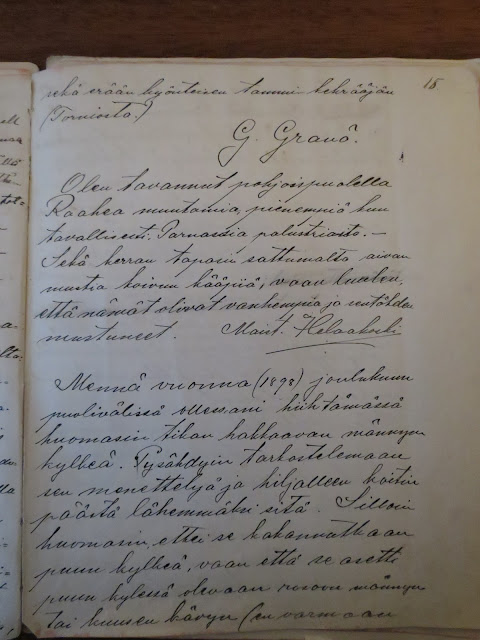 18
sekä erään kyönteisen tammi tekrääjän
(Torniosta.)
G. Granö.
Olen tavannut pohjoispuolella
Raahea muutamia, pienempiä kuin
tavallisesti. Parnassia palustriasta. —
Sekä kerran tapasin sattumalta aivan
mustia koivun kääpiä, vaan luulen,
että nämät olivat vanhempia ja sentähden
mustuneet. Maist. Helaakoski
Mennä vuonna (1898) joulukuun
puolivälissä ollessani hiihtämässä
huomasin tikan hakkaavan männyn
kylkeä. Pysähdyin tarkastelemaan
sen menettelyä ja hiljalleen koitin
päästä lähemmäksi sitä. Silloin
huomasin, ettei se hakannutkaan
puun kylkeä, vaan että se asetti
puun kylessä olevaan männyn
tai kuusen kävyn (en varmaan